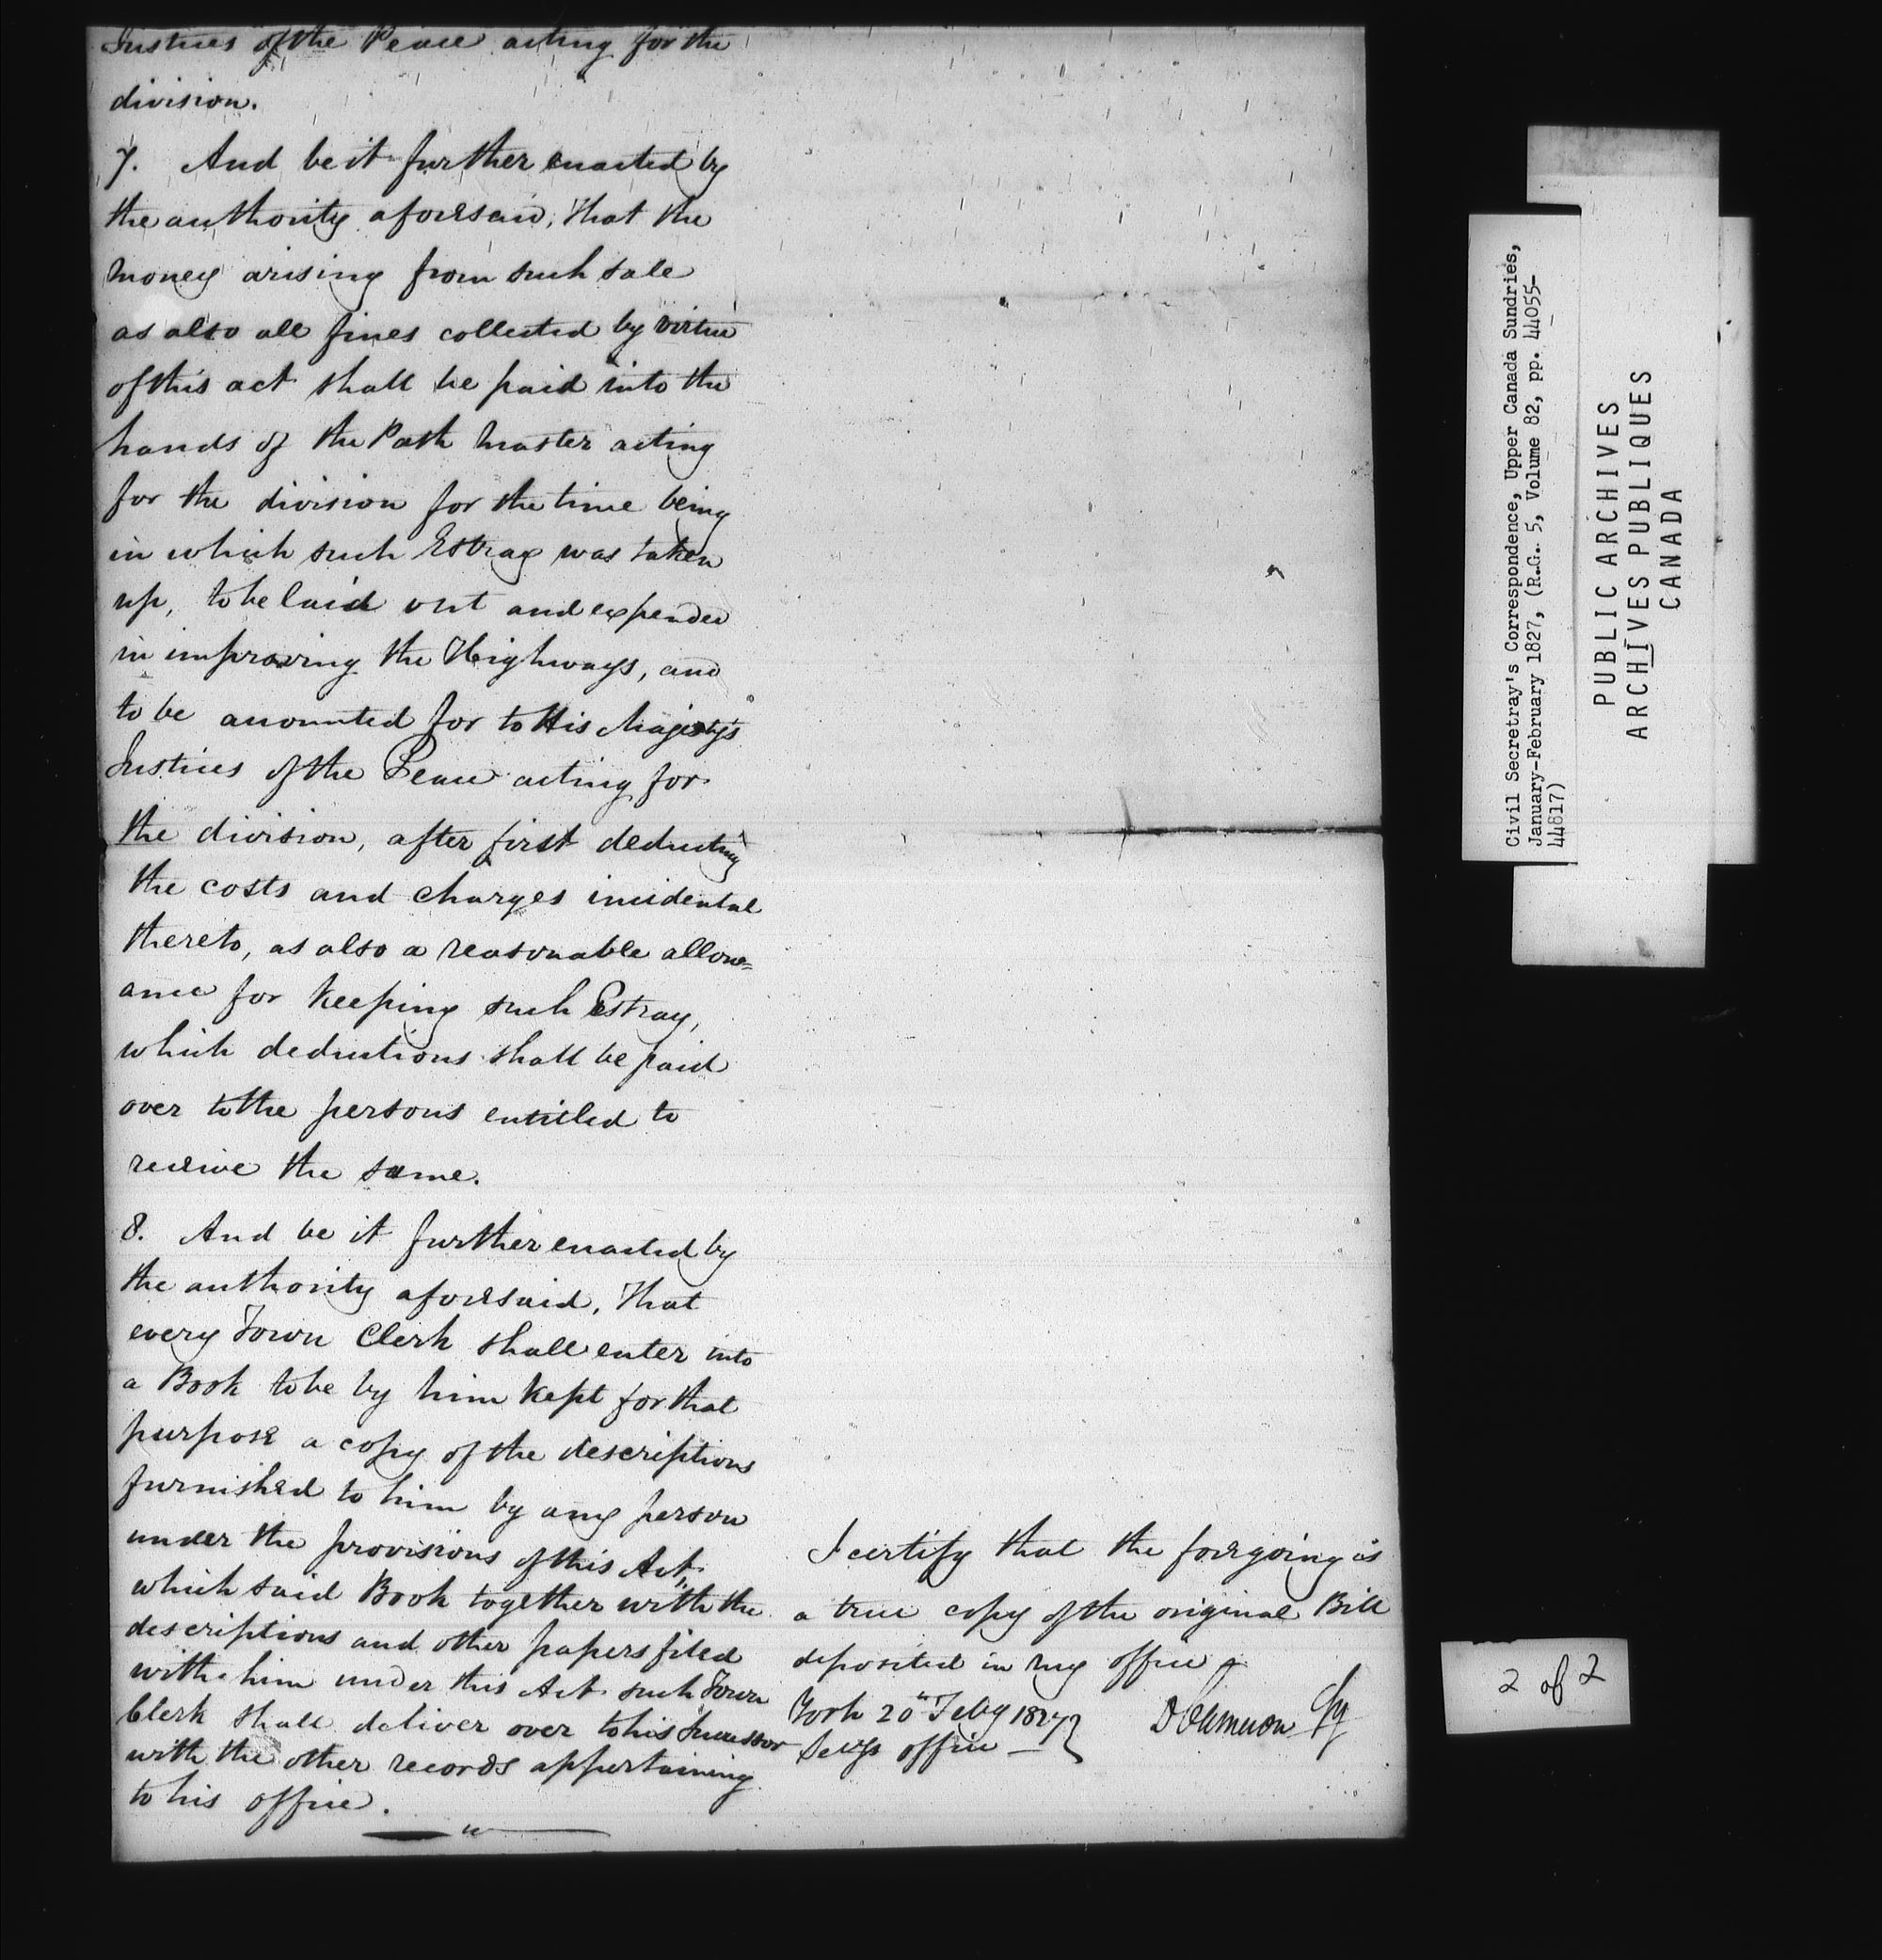 Justices of the Peace acting for the
division.
7. And be it further enacted by
the authority aforesaid, That the
money arising from such sale
as also all fines collected by virtue
of this act shall be paid into the
hands of the Path Master acting
for the division for the time being
in which such Estray was taken
up, to be laid out and expended
in improving the Highways, and
to be accounted for to His Majesty's
Justices of the Peace acting for
the division, after first deducting
the costs and charges incidental
thereto, as also a reasonable allow=
ance for keeping such Estray,
which deductions shall be paid
over to the persons entitled to
receive the same.
8. And be it further enacted by
the authority aforesaid, That
every Town Clerk shall enter into
a Book to be by him kept for that
purpose a copy of the descriptions
furnished to him by any person
under the provisions of this Act,
which said Book together with the
descriptions and other papers filed
with him under this Act such Town
Clerk shall deliver over to his Successor
with the other records appertaining
to his office.
I certify that the foregoing is
a true copy of the original Bill
deposited in my office
York 20th Feby 1827
Secys office
D Cameron Sy
Civil Secretray's Correspondence, Upper Canada Sundries,
January-February 1827, (R.G. 5, Volume 82, pp. 44055-
44817)
PUBLIC ARCHIVES
ARCHIVES PUBLIQUES
CANADA
2 of 2